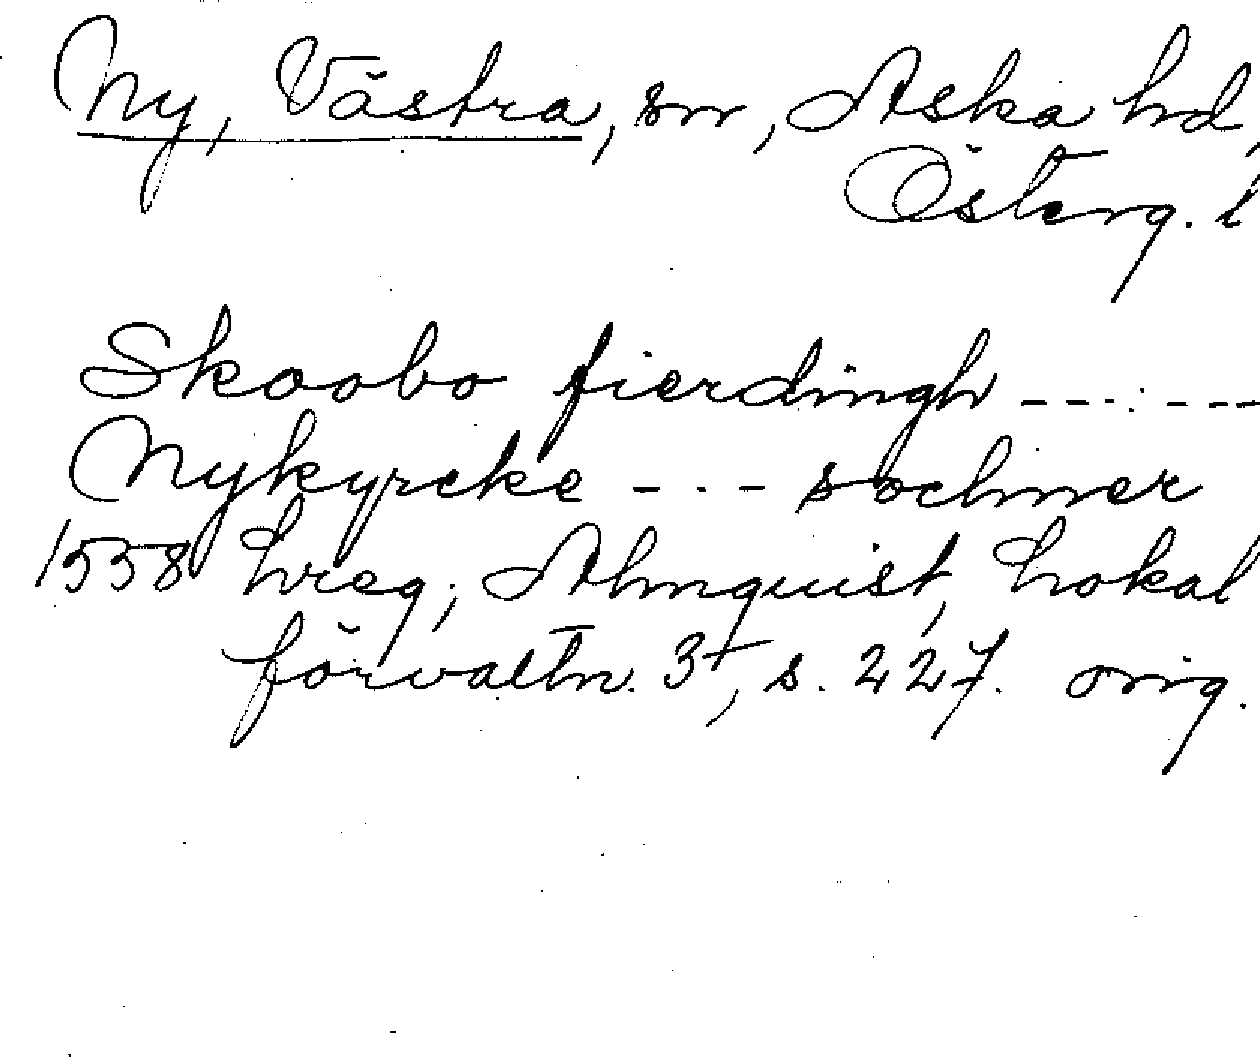 Ny, Västra, sn, Aska hd,
Österg. l
Skoobo fierdingh - - - - - -
Nykyrcke - - - sochner
1558 Lreg; Almquist, Lokal
förvaltn. 3, s. 227. orig.